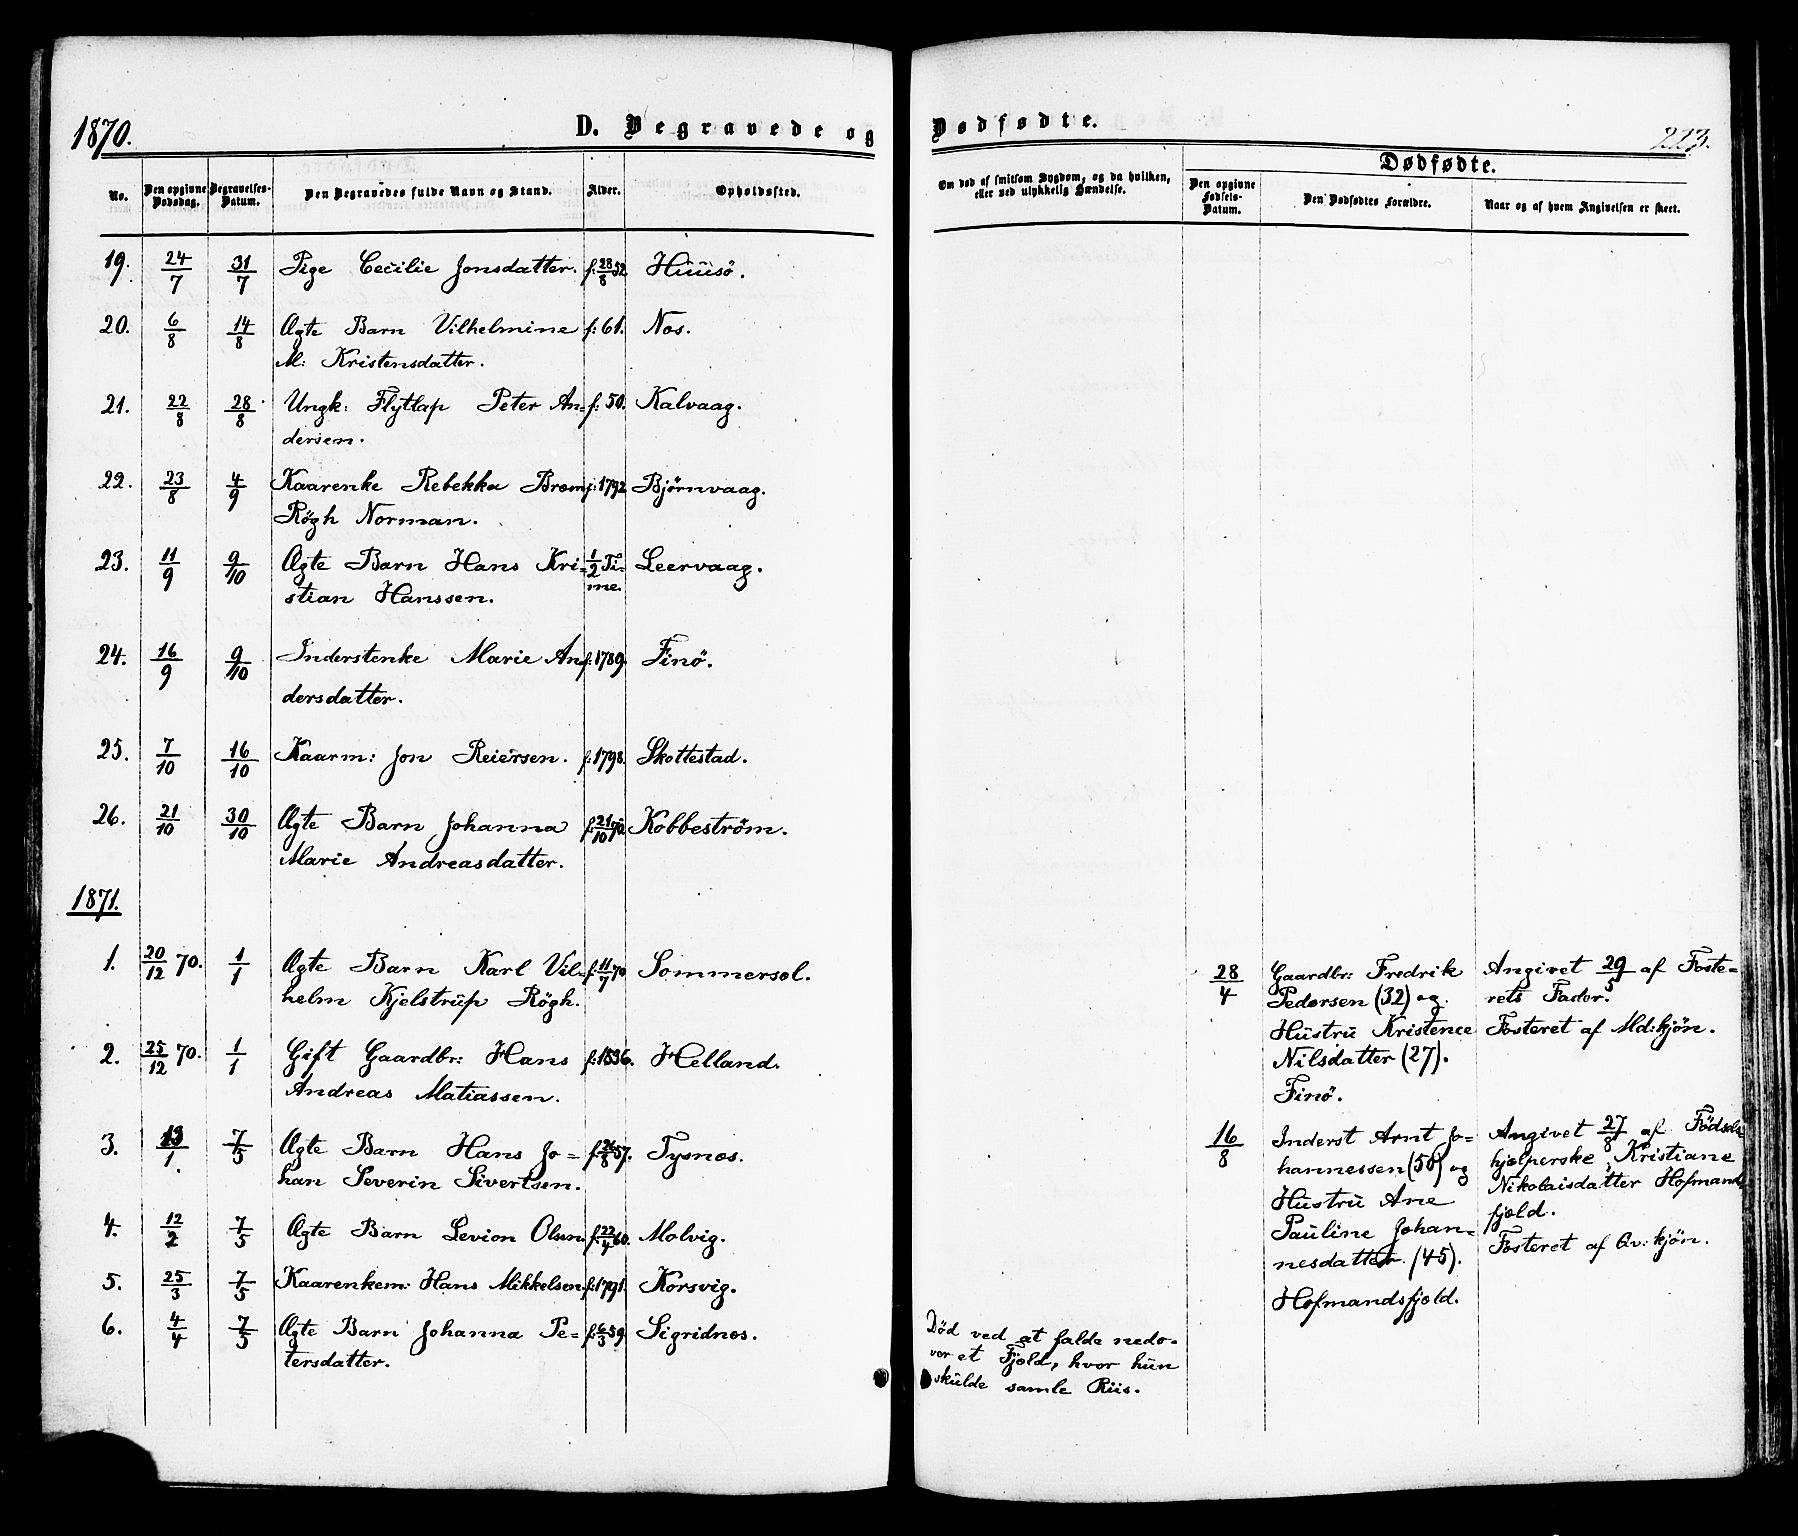 1870.
D. Begravede og
No.
Den opgivne Dødsdag.
Begravelses-Datum.
Den Begravedes fulde Navn og Stand.
Alder.
Opholdssted.
19. 24/7 31/7 Pige Cecilie Jonsdatter. f: 28/8 52 Huusö.
20. 6/8 14/8 Ægte Barn Vilhelmine f: 61. Nos.
M: Kristensdatter.
21. 22/8 28/8 Ungk: Flytlap Peter An- f: 50. Kalvaag.
dersen.
22. 23/8 4/9 Kaarenke Rebekka Brem f: 1792 Björnvaag.
Rögh Norman.
23. 11/9 9/10 Ægte Barn Hans Kri- 1/2 Ti- Leervaag.
stian Hanssen. me.
24. 16/9 9/10 Inderstenke Marie An f: 1789. Finö.
dersdatter.
25. 7/10 16/10 Kaarm: Jon Reiersen. f: 1798. Skottestad.
26. 21/10 30/10 Ægte Barn Johanna f: 21/10 70. Kobbeström.
Marie Andreasdatter.
1871.
1. 20/12 70. 1/1 Ægte Barn Karl Vil- f: 11/7 70 Sommersel.
helm Kjelstrup Rögh.
2. 25/12 70. 1/1 Gift Gaardbr: Hans f: 1836. Helland.
Andreas Matiassen.
3. 13/1. 7/5 Ægte Barn Hans Jo- f: 26/8 57. Tysnes.
han Severin Sivertsen.
4. 12/2 7/5 Ægte Barn Levion Olsen f: 22/4 60. Molvig.
5. 25/3 7/5 Kaarenkem: Hans Mikkelsen. f: 1791. Korsvig.
6. 4/4 7/5 Ægte Barn Johanna Pe- f: 6/3 59. Sigridnes.
tersdatter.
Dødfødte.
223.
Om død af smitsom Sygdom, og da hvilken,
eller ved ulykkelig Hændelse.
Dødfødte.
Den opgivne Fødsels-Datum.
Den Dødfødtes Forældre.
Naar og af hvem Angivelsen er skeet.
28/4 Gaardbr: Fredrik Angivet 29/5 af Foste-
Pedersen (32) og rets Fader.
Hustru Kristence Fosteret af Md: kjøn.
Nilsdatter (27).
Finö.
16/8 Inderst Arnt Jo- Angivet 27/8 af Födsels
hannessen (50) og hjælperske, Kristiane
Hustru Ane Nikolaisdatter Hofmands
Pauline Johan- fjeld.
nesdatter. (45). Fosteret af Qv: kjøn.
Hofmandsfjeld.
Död ved at falde nedo-
ver et Fjeld, hvor hun
skulde samle Riis.